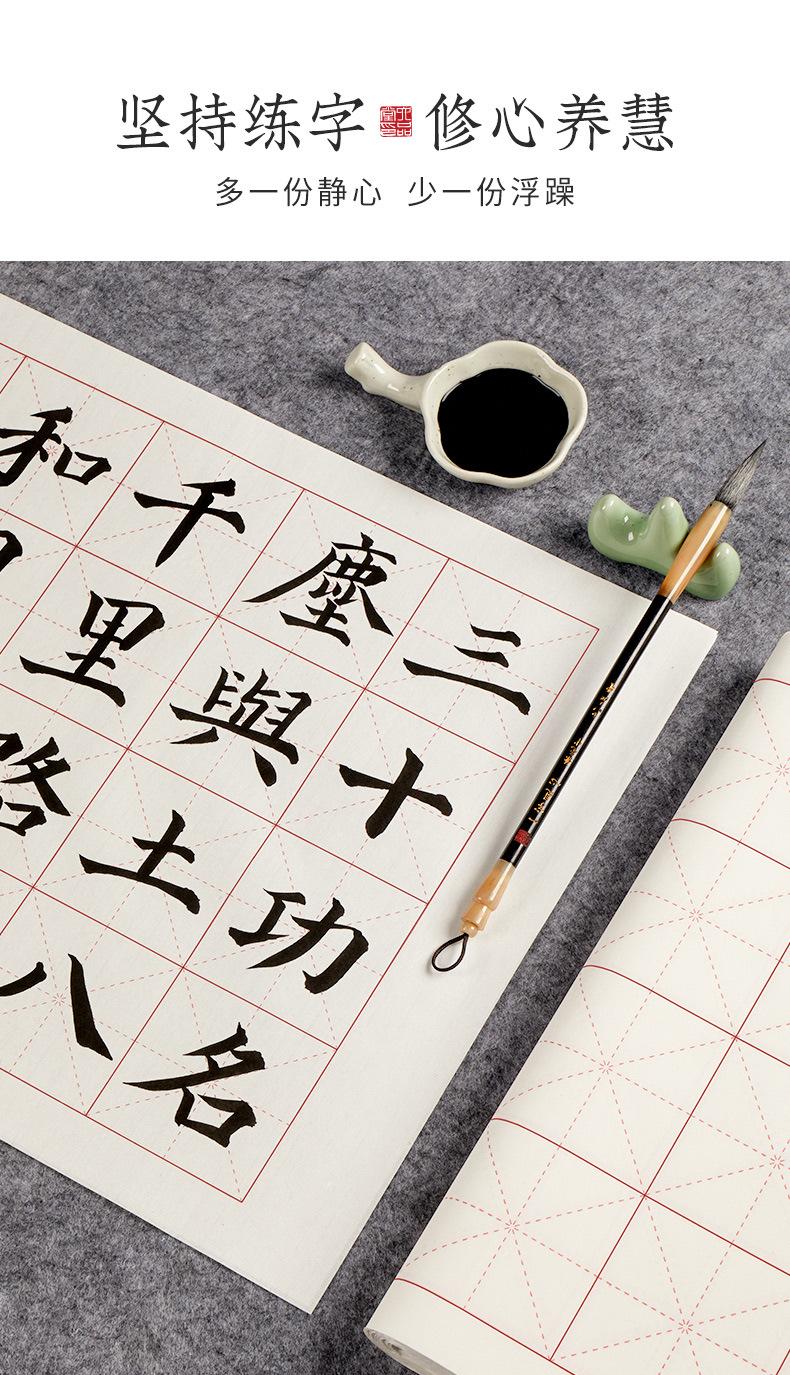 坚持练字 修心养慧
多一份静心 少一份浮躁
三十功名
塵與土八
千里路
和